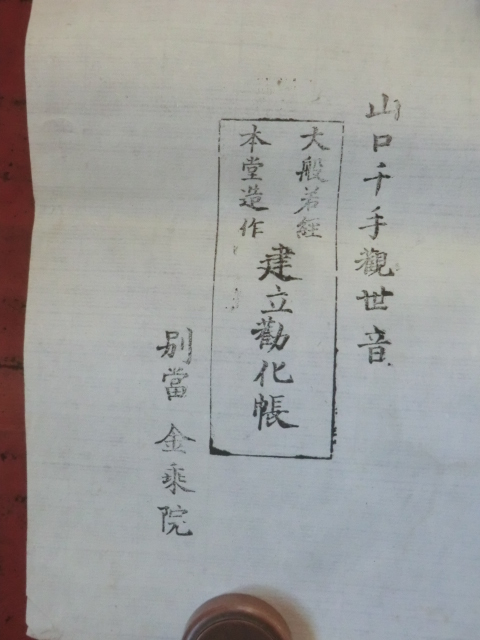 山口千手觀世音
大般若經
本堂造作
建立勸化帳
別當 金乘院